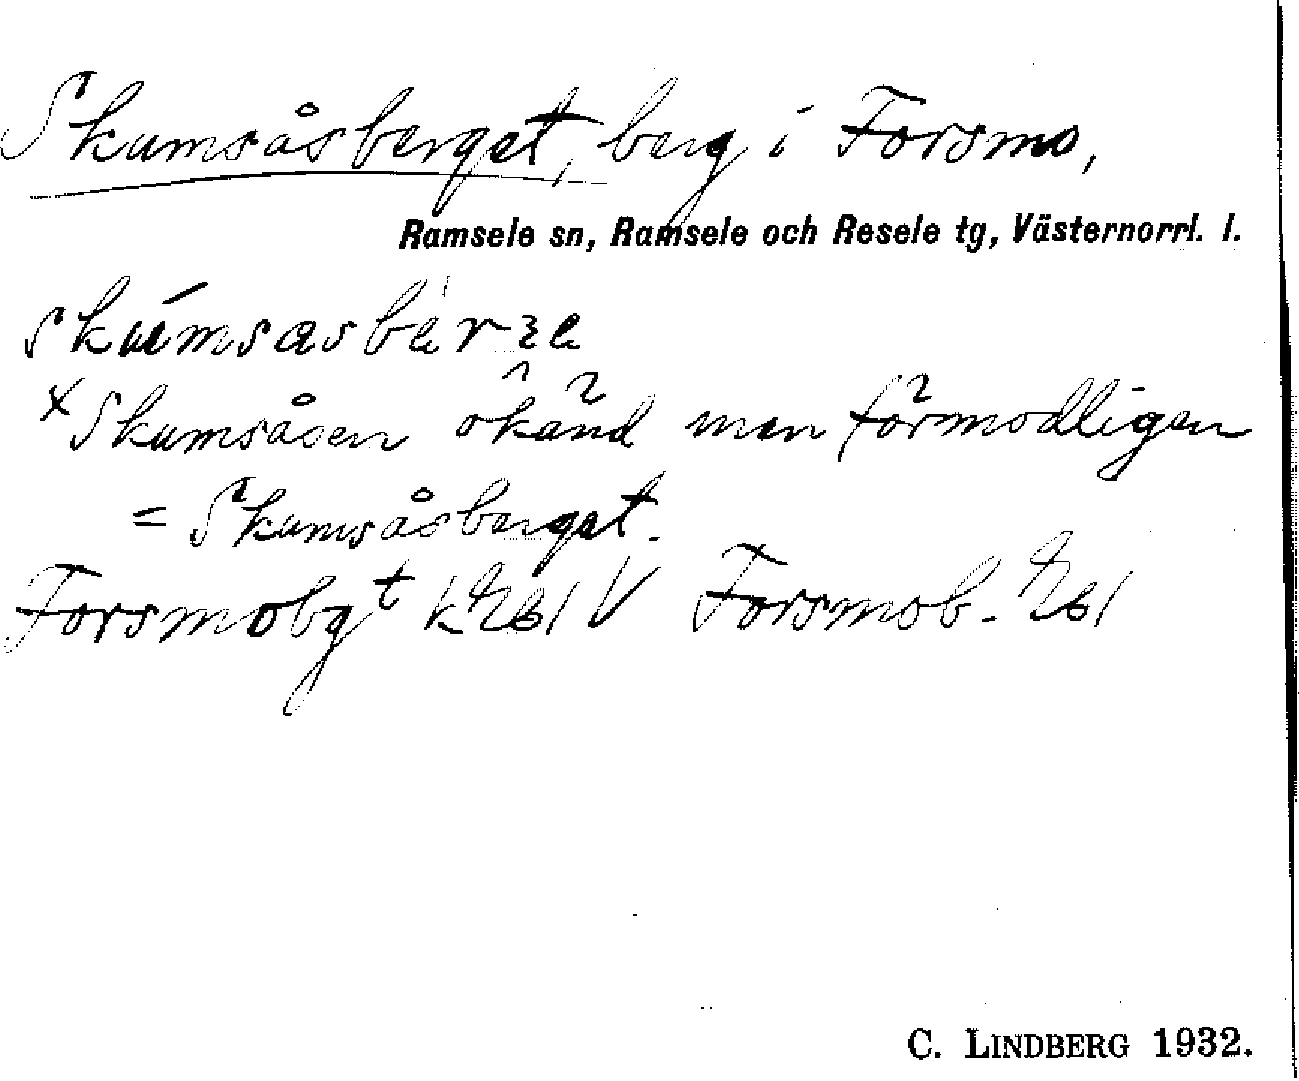 Skumsåsberget, berg i Forsmo,
Ramsele sn, Ramsele och Resele tg, Västernorrl. l.
skúmsasbär
×Skumsåsen okänd men förmodligen
= Skumsåsberget.
Forsmobgt k 261 V Forsmob. 261
C. LINDBERG 1932.